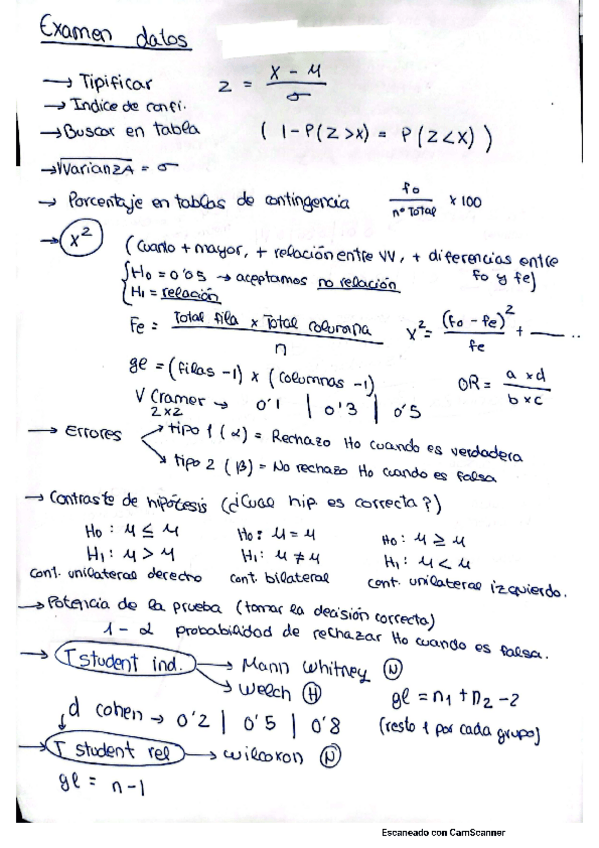 Examen datos
→ Tipificar z = (X - μ) / σ
→ Indice de confi.
→ Buscar en tabla ( 1 - P(Z > x) = P(Z < X) )
→ √VarianzA = σ
→ Porcentaje en tablas de contingencia fo / nº Total x 100
→ X² (Cuanto + mayor, + relación entre VV, + diferencias entre fo y fe)
{ Ho = 0'05 → aceptamos no relación
{ H₁ = relación
Fe = (Total fila x Total columna) / n X² = (fo - fe)² / fe + — ..
gl = (filas - 1) x (columnas - 1) OR = (a x d) / (b x c)
V Cramer → 0'1 | 0'3 | 0'5
2x2
→ Errores → tipo 1 (α) = Rechazo Ho cuando es verdadera
→ tipo 2 (β) = No rechazo Ho cuando es falsa
→ Contraste de hipótesis (¿Cual hip es correcta?)
Ho : μ ≤ μ Ho : μ = μ Ho : μ ≥ μ
H₁ : μ > μ H₁ : μ ≠ μ H₁ : μ < μ
Cont. unilateral derecho cont. bilateral cont. unilateral izquierdo.
→ Potencia de la prueba (tomar la decisión correcta)
1 - α probabilidad de rechazar Ho cuando es falsa.
→ T student ind. → Mann Whitney (N)
→ Welch (H) gl = n₁ + n₂ - 2
d cohen → 0'2 | 0'5 | 0'8 (resto 1 por cada grupo)
→ T student rel → wilcoxon (N)
gl = n - 1
Escaneado con CamScanner